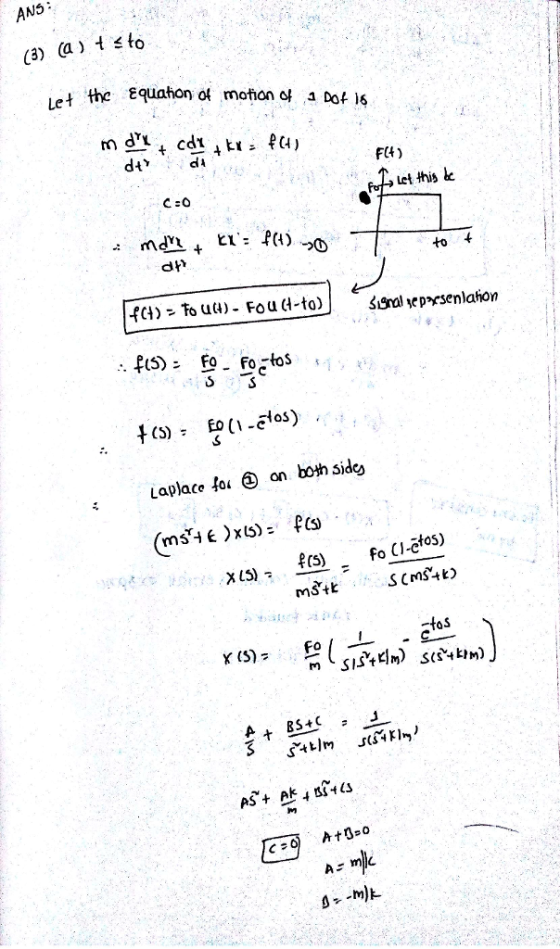 ANS:
(3) (a) t ≤ to
Let the Equation of motion of 1 Dof is
m d²x/dt² + cdx/dt + kx = f(t)
F(t)
Fo → Let this be
to t
c=0
∴ md²x/dt² + kx = f(t) → ①
f(t) = Fo u(t) - Fo u(t-to)
Signal representation
∴ f(s) = Fo/s - Fo/s e^-tos
∴ f(s) = Fo/s (1 - e^-tos)
Laplace for ① on both sides
(ms² + k) x(s) = f(s)
x(s) = f(s)/ms²+k = Fo (1-e^-tos)/s(ms²+k)
x(s) = Fo/m (1/s(s²+k/m) - e^-tos/s(s²+k/m))
A/s + Bs+c/s²+k/m = 1/s(s²+k/m)
As² + Ak/m + Bs² + cs
c=0 A+B=0
A = m/k
B = -m/k